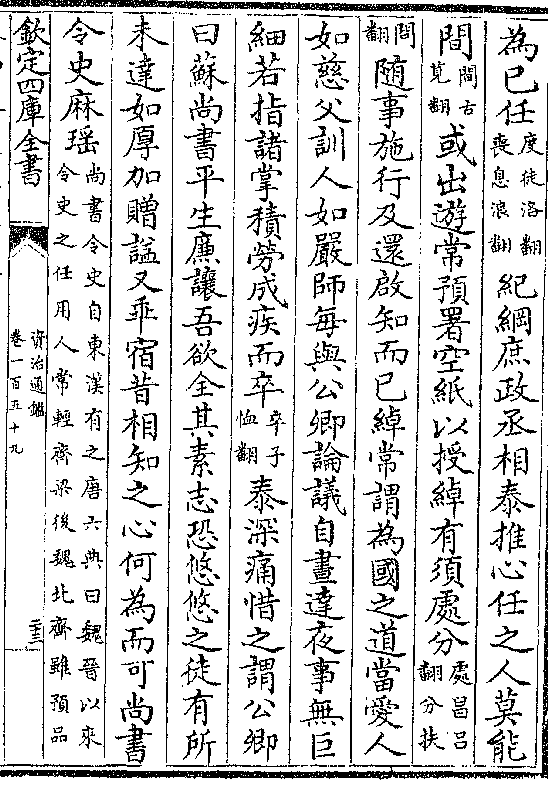 為已任度徒洛翻喪息浪翻紀綱庶政丞相泰推心任之人莫能
間間古莧翻或出遊常預署空紙以授綽有須處分處昌呂翻分扶
問翻隨事施行及還啟知而已綽常謂為國之道當愛人
如慈父訓人如嚴師每與公卿論議自晝達夜事無巨
細若指諸掌積勞成疾而卒卒子恤翻泰深痛惜之謂公卿
曰蘇尚書平生廉讓吾欲全其素志恐悠悠之徒有所
未達如厚加贈諡又乖宿昔相知之心何為而可尚書
令史麻瑶尚書令史自東漢有之唐六典曰魏晉以來令史之任用人常輕齊梁後魏北齊雖預品
欽定四庫全書
資治通鑑
卷一百五十九
二三